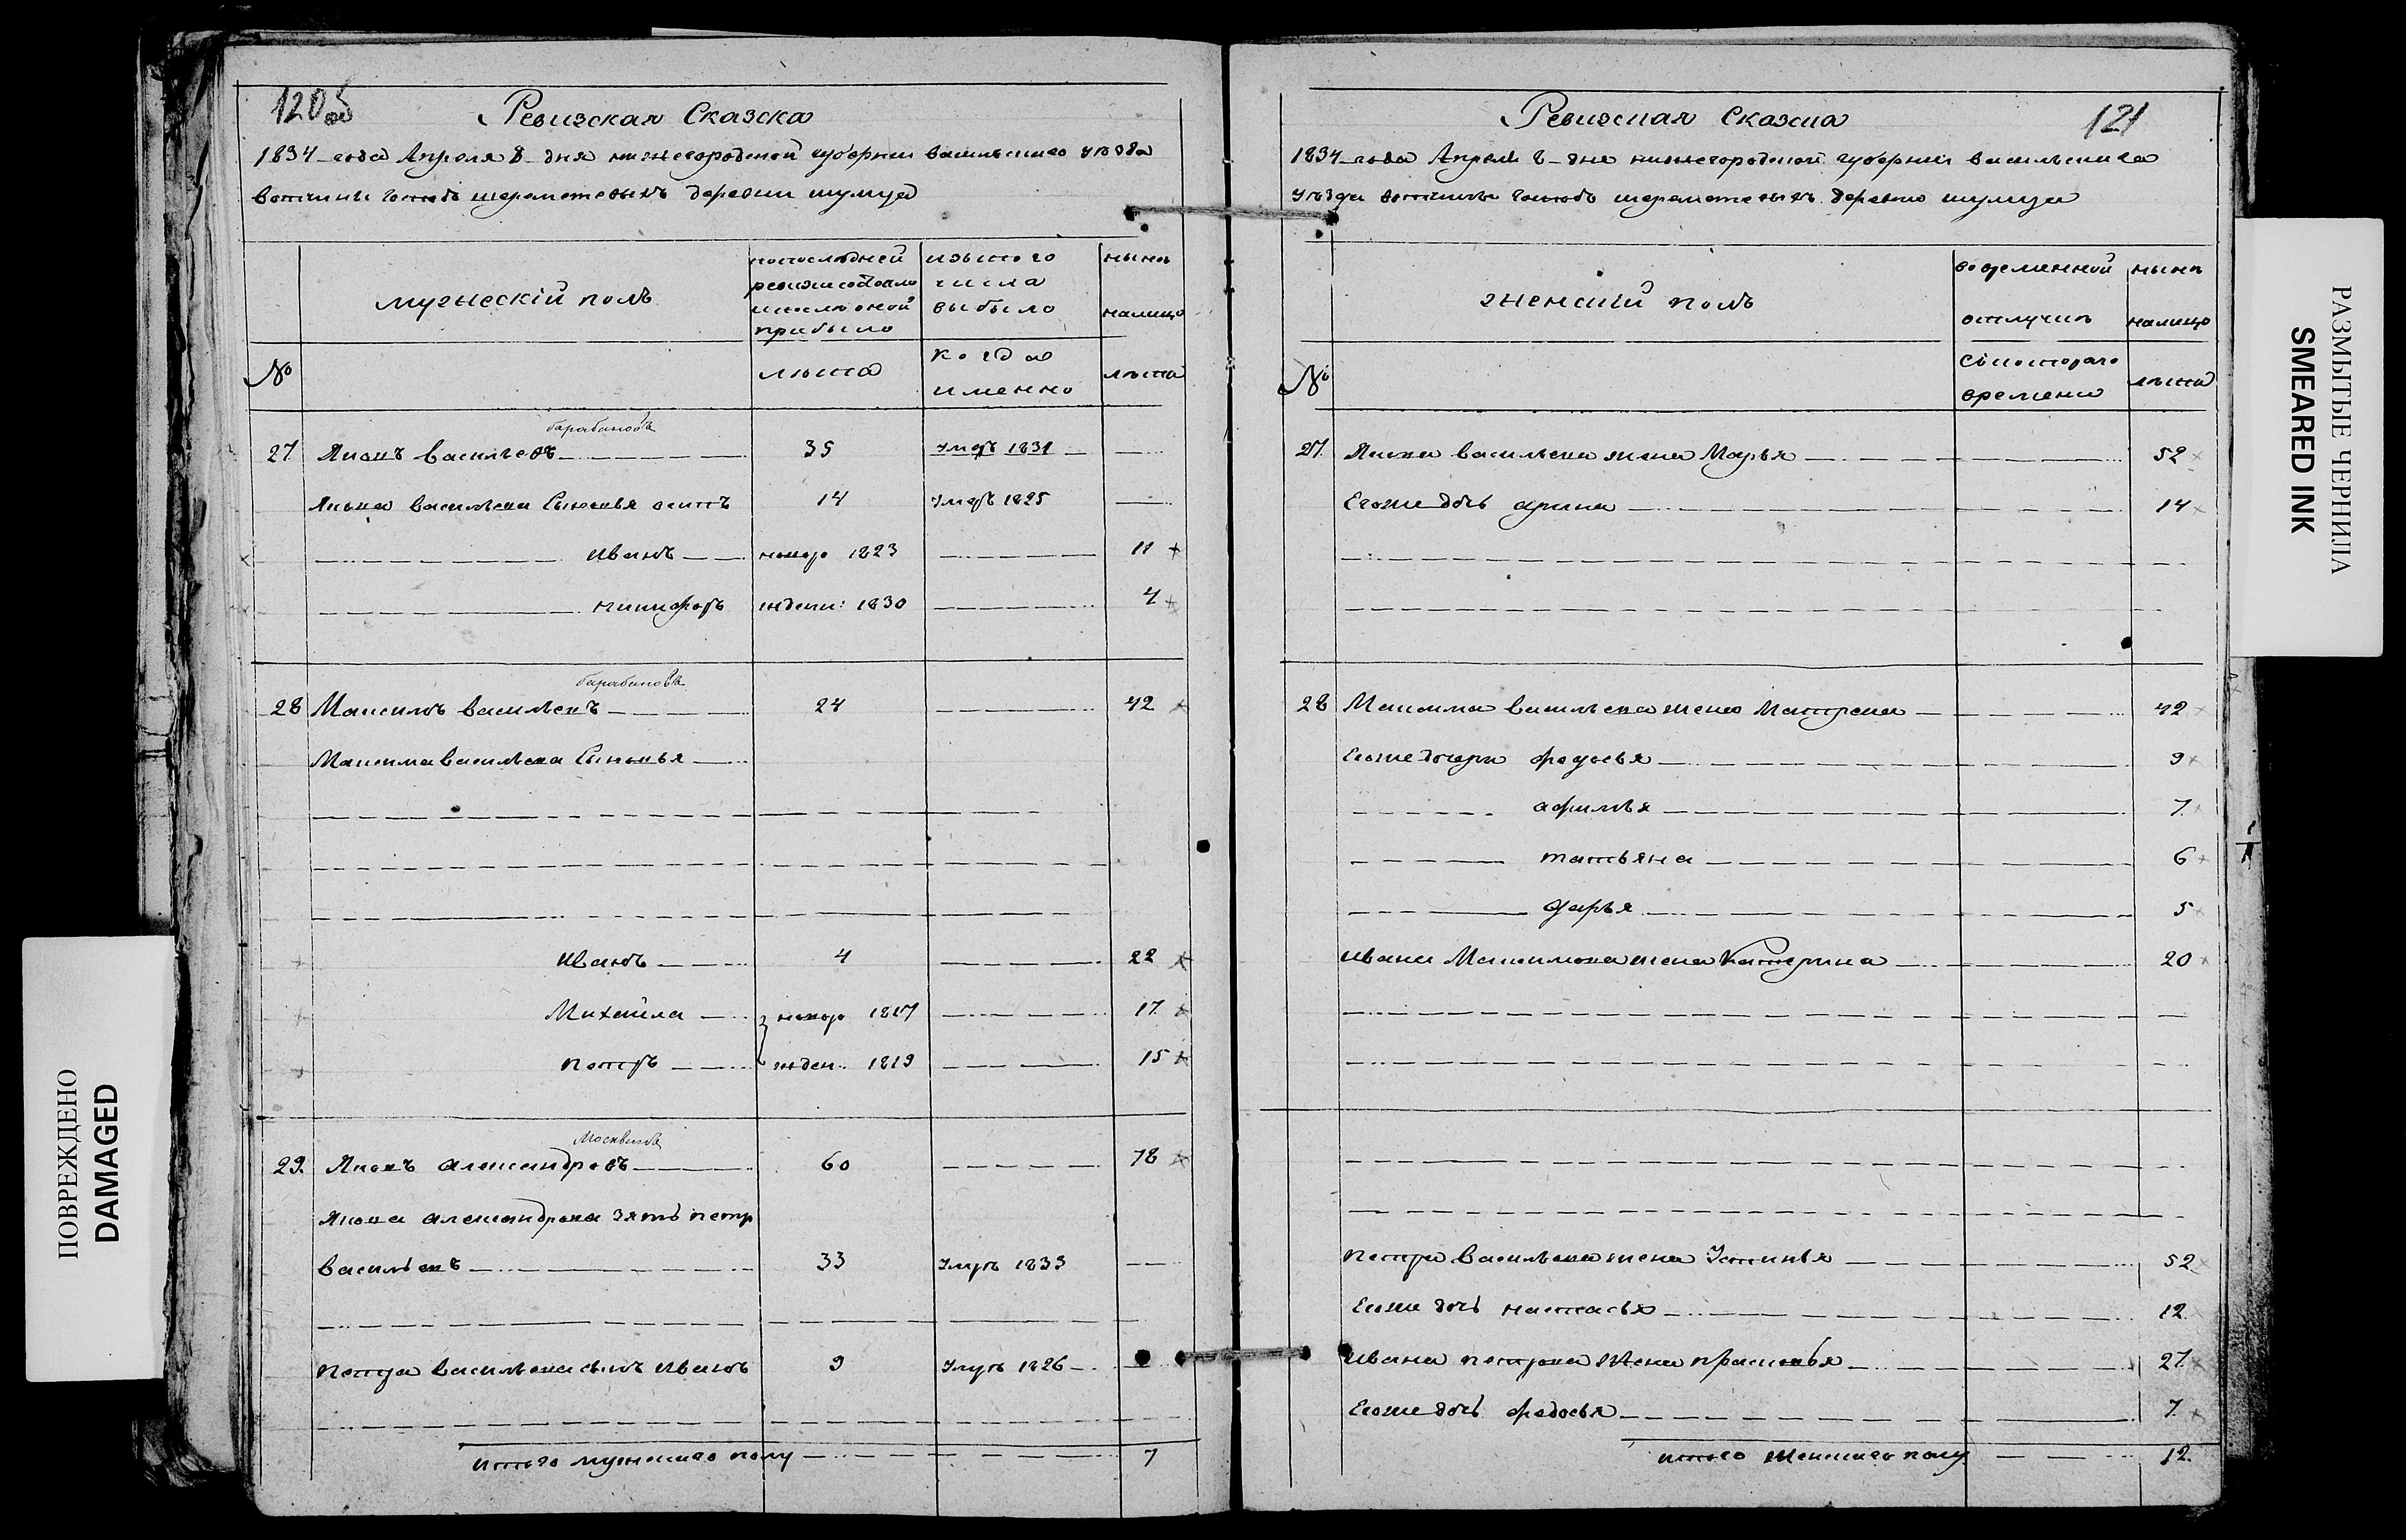 120об
Ревизская Сказска
1834 года Апреля 8 дня нижегородской губернии васильского уезда
вотчины Госпдъ шереметевыхъ деревни шумца
№
мужескій полъ
попоследней
ревизи состояло
ипослеоной
прибыло
лѣта
изътого
числа
выбыло
когда
именно
нынѣ
налицо
лѣта
барабановъ
27 Яковъ васильевъ 35 Умеръ 1831
Якова васильева Сыновья осипъ 14 Умеръ 1825
Иванъ новоро 1823 11
никифоръ жденн: 1830 4
барабановъ
28 Максимъ васильевъ 24 42
Максима васильева Сыновья
Иванъ 4 22
Михаила новоро 1817 17
петръ жден: 1819 15
Москвинъ
29. Яковъ александровъ 60 78
Якова александрова зять петръ
васильевъ 33 Умръ 1833
петра васильева сынъ иванъ 9 Умръ 1826
итого мужескаго полу 7
Ревизская Сказска
121
1834 года Апреля 8 дня нижегородской губернии васильскаго
уѣзда вотчины Госпдъ шереметевыхъ деревню шумца
№
женскій полъ
вовременной
отлучкѣ
скотораго
времени
нынѣ
налицо
лѣта
27. Якова васильева жена Марья 52
Егоже дочь арина 14
28 Максима васильева жена Матрена 42
Егоже дочери федосья 9
афимья 7
татьяна 6
дарья 5
ивана Максимова жена Катерина 20
петра васильева жена Устинья 52
Егоже дочь настасья 12
ивана петрова жена прасковья 27
Егоже дочь федосья 7
итого женскаго полу 12.
ПОВРЕЖДЕНО
DAMAGED
РАЗМЫТЫЕ ЧЕРНИЛА
SMEARED INK